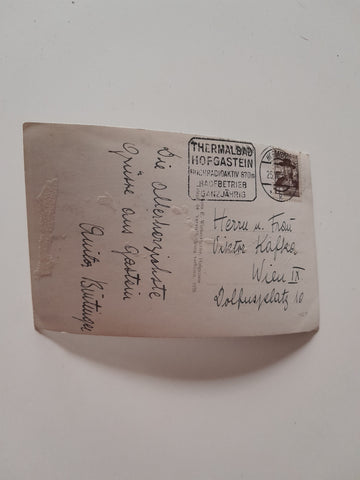 Die allerherzlichste
Grüsse aus Gastein
Anita
THERMALBAD
HOFGASTEIN
HOCHRADIOAKTIV 870m
BADEBETRIEB
GANZJÄHRIG
Herrn u. Frau
Viktor Kafka
Wien IX.
Dolfussplatz 10